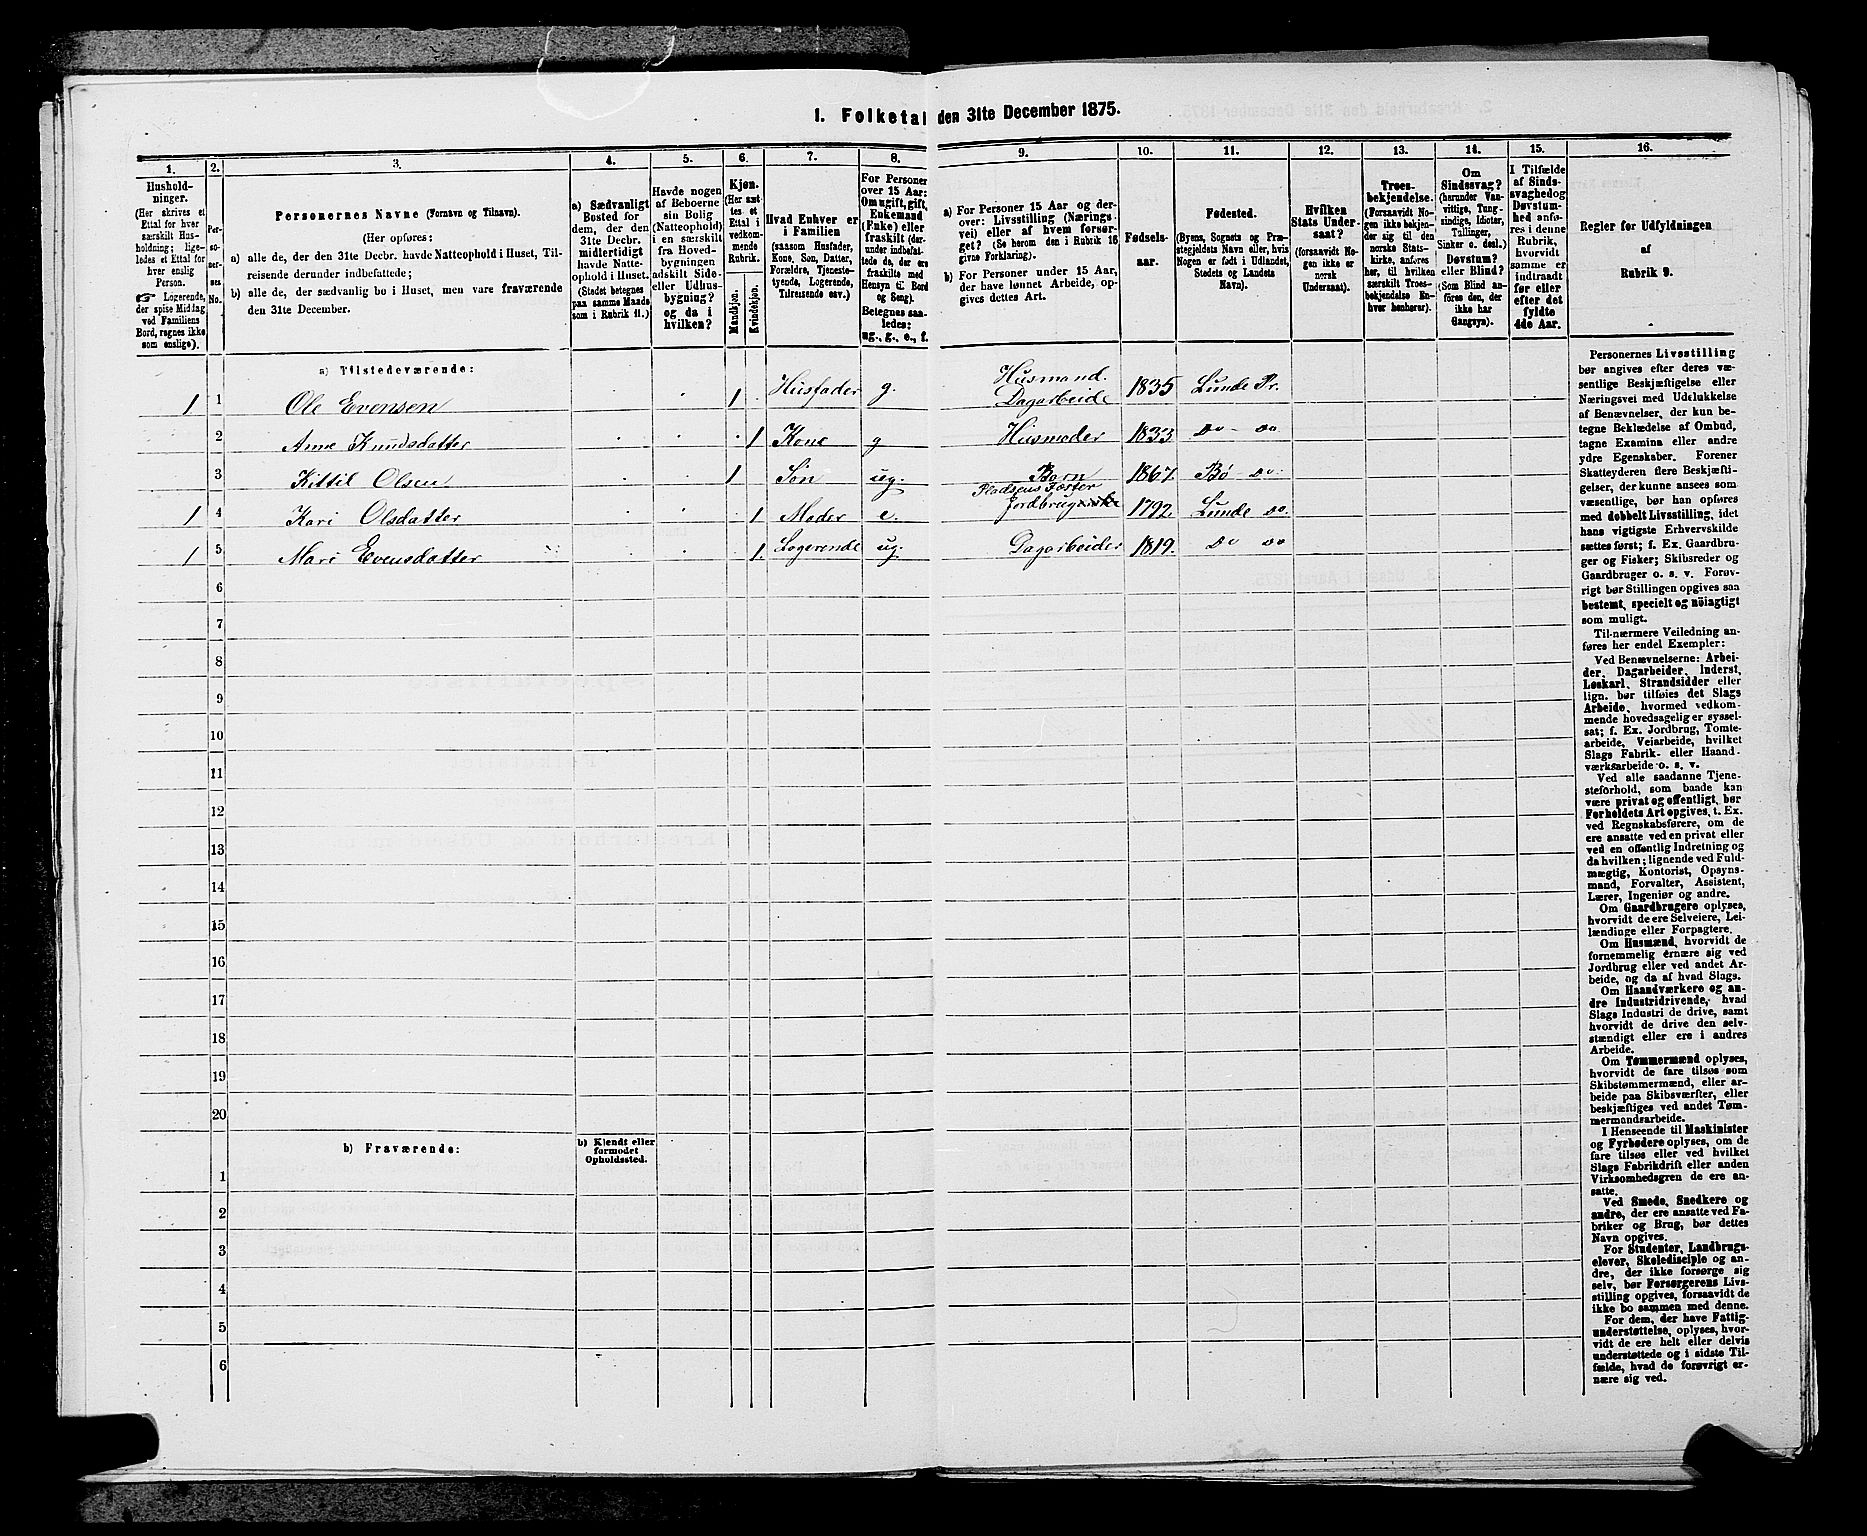 1. Folketal den 31te December 1875.
1. 2. 3. 4. 5. 6. 7. 8. 9. 10. 11. 12. 13. 14. 15. 16.
Hushold-
ninger.
(Her skrives et
Ettal for hver
særskilt Hus-
holdning; lige-
ledes et Ettal for
hver enslig
Person.
☞ Logerende,
der spise Middag
ved Familiens
Bord, regnes ikke
som enslige).
Per-
so-
ner-
nes
No.
Personernes Navne (Fornavn og Tilnavn).
(Her opføres:
a) alle de, der den 31te Decbr. havde Natteophold i Huset, Til-
reisende derunder indbefattede;
b) alle de, der sædvanlig bo i Huset, men vare fraværende
den 31te December.
a) Sædvanligt
Bosted for
dem, der den
31te Decbr.
midlertidigt
havde Natte-
ophold i Huset.
(Stedet betegnes
paa samme Maade
som i Rubrik 11.)
Havde nogen
af Beboerne
sin Bolig
(Natteophold)
i en særskilt
fra Hoved-
bygningen
adskilt Side-
eller Udhus-
bygning?
og da i
hvilken?
Kjøn.
(Her sæt-
tes et
Ettal i
vedkom-
mende
Rubrik.
Mandkjøn.
Kvindekjøn.
Hvad Enhver er
i Familien
(saasom Husfader,
Kone, Søn, Datter,
Forældre, Tjeneste-
tyende, Logerende,
Tilreisende osv.)
For Personer
over 15 Aar:
Om ugift, gift,
Enkemand
(Enke) eller
fraskilt (der-
under indbefat-
tede de, der ere
fraskilte med
Hensyn til Bord
og Seng).
Betegnes saa-
ledes:
ug., g., e., f.
a) For Personer 15 Aar og der-
over: Livsstilling (Nærings-
vei) eller af hvem forsør-
get? (Se herom den i Rubrik 16
givne Forklaring).
b) For Personer under 15 Aar,
der have lønnet Arbeide, op-
gives dettes Art.
Fødsels-
aar.
Fødested.
(Byens, Sognets og Præ-
stegjeldets Navn eller, hvis
Nogen er født i Udlandet,
Stedets og Landets
Navn).
Hvilken
Stats Under-
saat?
(forsaavidt No-
gen ikke er
norsk
Undersaat).
Troes-
bekjendelse.
(Forsaavidt No-
gen ikke bekjen-
der sig til den
norske Stats-
kirke, anføres
her, til hvilken
særskilt Troes-
bekjendelse En-
hver henhører).
Om
Sindssvag?
(herunder Van-
vittige, Tung-
sindige, Idioter,
Tullinger,
Sinker o. desl.)
Døvstum?
eller Blind?
(Som Blind an-
føres den, der
ikke har
Gangsyn).
I Tilfælde
af Sinds-
svaghed og
Døvstum-
hed anfø-
res i denne
Rubrik,
hvorvidt
samme er
indtraadt
før eller
efter det
fyldte
4de Aar.
Regler for Udfyldningen
af
Rubrik 9.
a) Tilstedeværende:
1 1 Ole Evensen 1 Husfader g. Husmand. Dagarbeide 1835 Lunde Pr.
2 Anne Knudsdatter 1 Kone g Husmoder 1833 Do Do
3 Kittil Olsen 1 Søn ug. Barn 1867. Bø Do.
1 4 Kari Olsdatter 1 Moder e. Pladsens Fæster Jordbrug 1792. Lunde Do.
1 5 Mari Evensdatter 1. Logerende ug. Dagarbeider 1819. Do Do
6
7
8
9
10
11
12
13
14
15
16
17
18
19
20
b) Fraværende:
b) Kjendt eller
formodet
Opholdssted.
1
2
3
4
5
6
Personernes Livsstilling
bør angives efter deres væ-
sentlige Beskjæftigelse eller
Næringsvei med Udelukkelse
af Benævnelser, der kun be-
tegne Beklædelse af Ombud,
tagne Examina eller andre
ydre Egenskaber. Forener
Skatteyderen flere Beskjæfti-
gelser, der kunne ansees som
væsentlige, bør han opføres
med dobbelt Livsstilling, idet
hans vigtigste Erhvervskilde
sættes først; f. Ex. Gaardbru-
ger og Fisker; Skibsreder og
Gaardbruger o. s. v. Forøv-
rigt bør Stillingen opgives saa
bestemt, specielt og nøiagtigt
som muligt.
Til nærmere Veiledning an-
føres her endel Exempler:
Ved Benævnelserne: Arbei-
der, Dagarbeider, Inderst,
Løskarl, Strandsidder eller
lign. bør tilføies det Slags
Arbeide, hvormed vedkom-
mende hovedsagelig er syssel-
sat; f. Ex. Jordbrug, Tomte-
arbeide, Veiarbeide, hvilket
Slags Fabrik- eller Haand-
værksarbeide o. s. v.
Ved alle saadanne Tjene-
steforhold, som baade kan
være privat og offentligt, bør
Forholdets Art opgives, t. Ex.
ved Regnskabsførere, om de
ere ansatte ved en privat eller
ved en offentlig Indretning og
da hvilken; lignende ved Fuld-
mægtig, Kontorist, Opsyns-
mand, Forvalter, Assistent,
Lærer, Ingeniør og andre.
Om Gaardbrugere oplyses,
hvorvidt de ere Selveiere, Lei-
lændinge eller Forpagtere.
Om Husmænd, hvorvidt de
fornemmelig ernære sig ved
Jordbrug eller ved andet Ar-
beide, og da af hvad Slags.
Om Haandværkere og an-
dre Industridrivende, hvad
Slags Industri de drive, samt
hvorvidt de drive den selv-
stændigt eller ere i andres
Arbeide.
Om Tømmermænd oplyses,
hvorvidt de fare tilsøs som
Skibstømmermænd, eller ar-
beide paa Skibsværfter, eller
beskjæftiges ved andet Tøm-
mermandsarbeide.
I Henseende til Maskinister
og Fyrbødere oplyses, om de
fare tilsøs eller ved hvilket
Slags Fabrikdrift eller anden
Virksomhedsgren de ere an-
satte.
Ved Smede, Snedkere og
andre, der ere ansatte ved Fa-
briker og Brug, bør dettes
Navn opgives.
For Studenter, Landbrugs-
elever, Skoledisciple og an-
dre, der ikke forsørge sig
selv, bør Forsørgerens Livs-
stilling opgives, forsaavidt de
ikke bo sammen med denne.
For dem, der have Fattig-
understøttelse, oplyses, hvor-
vidt de ere helt eller delvis
understøttede og i sidste Til-
fælde, hvad de forøvrigt er-
nære sig ved.